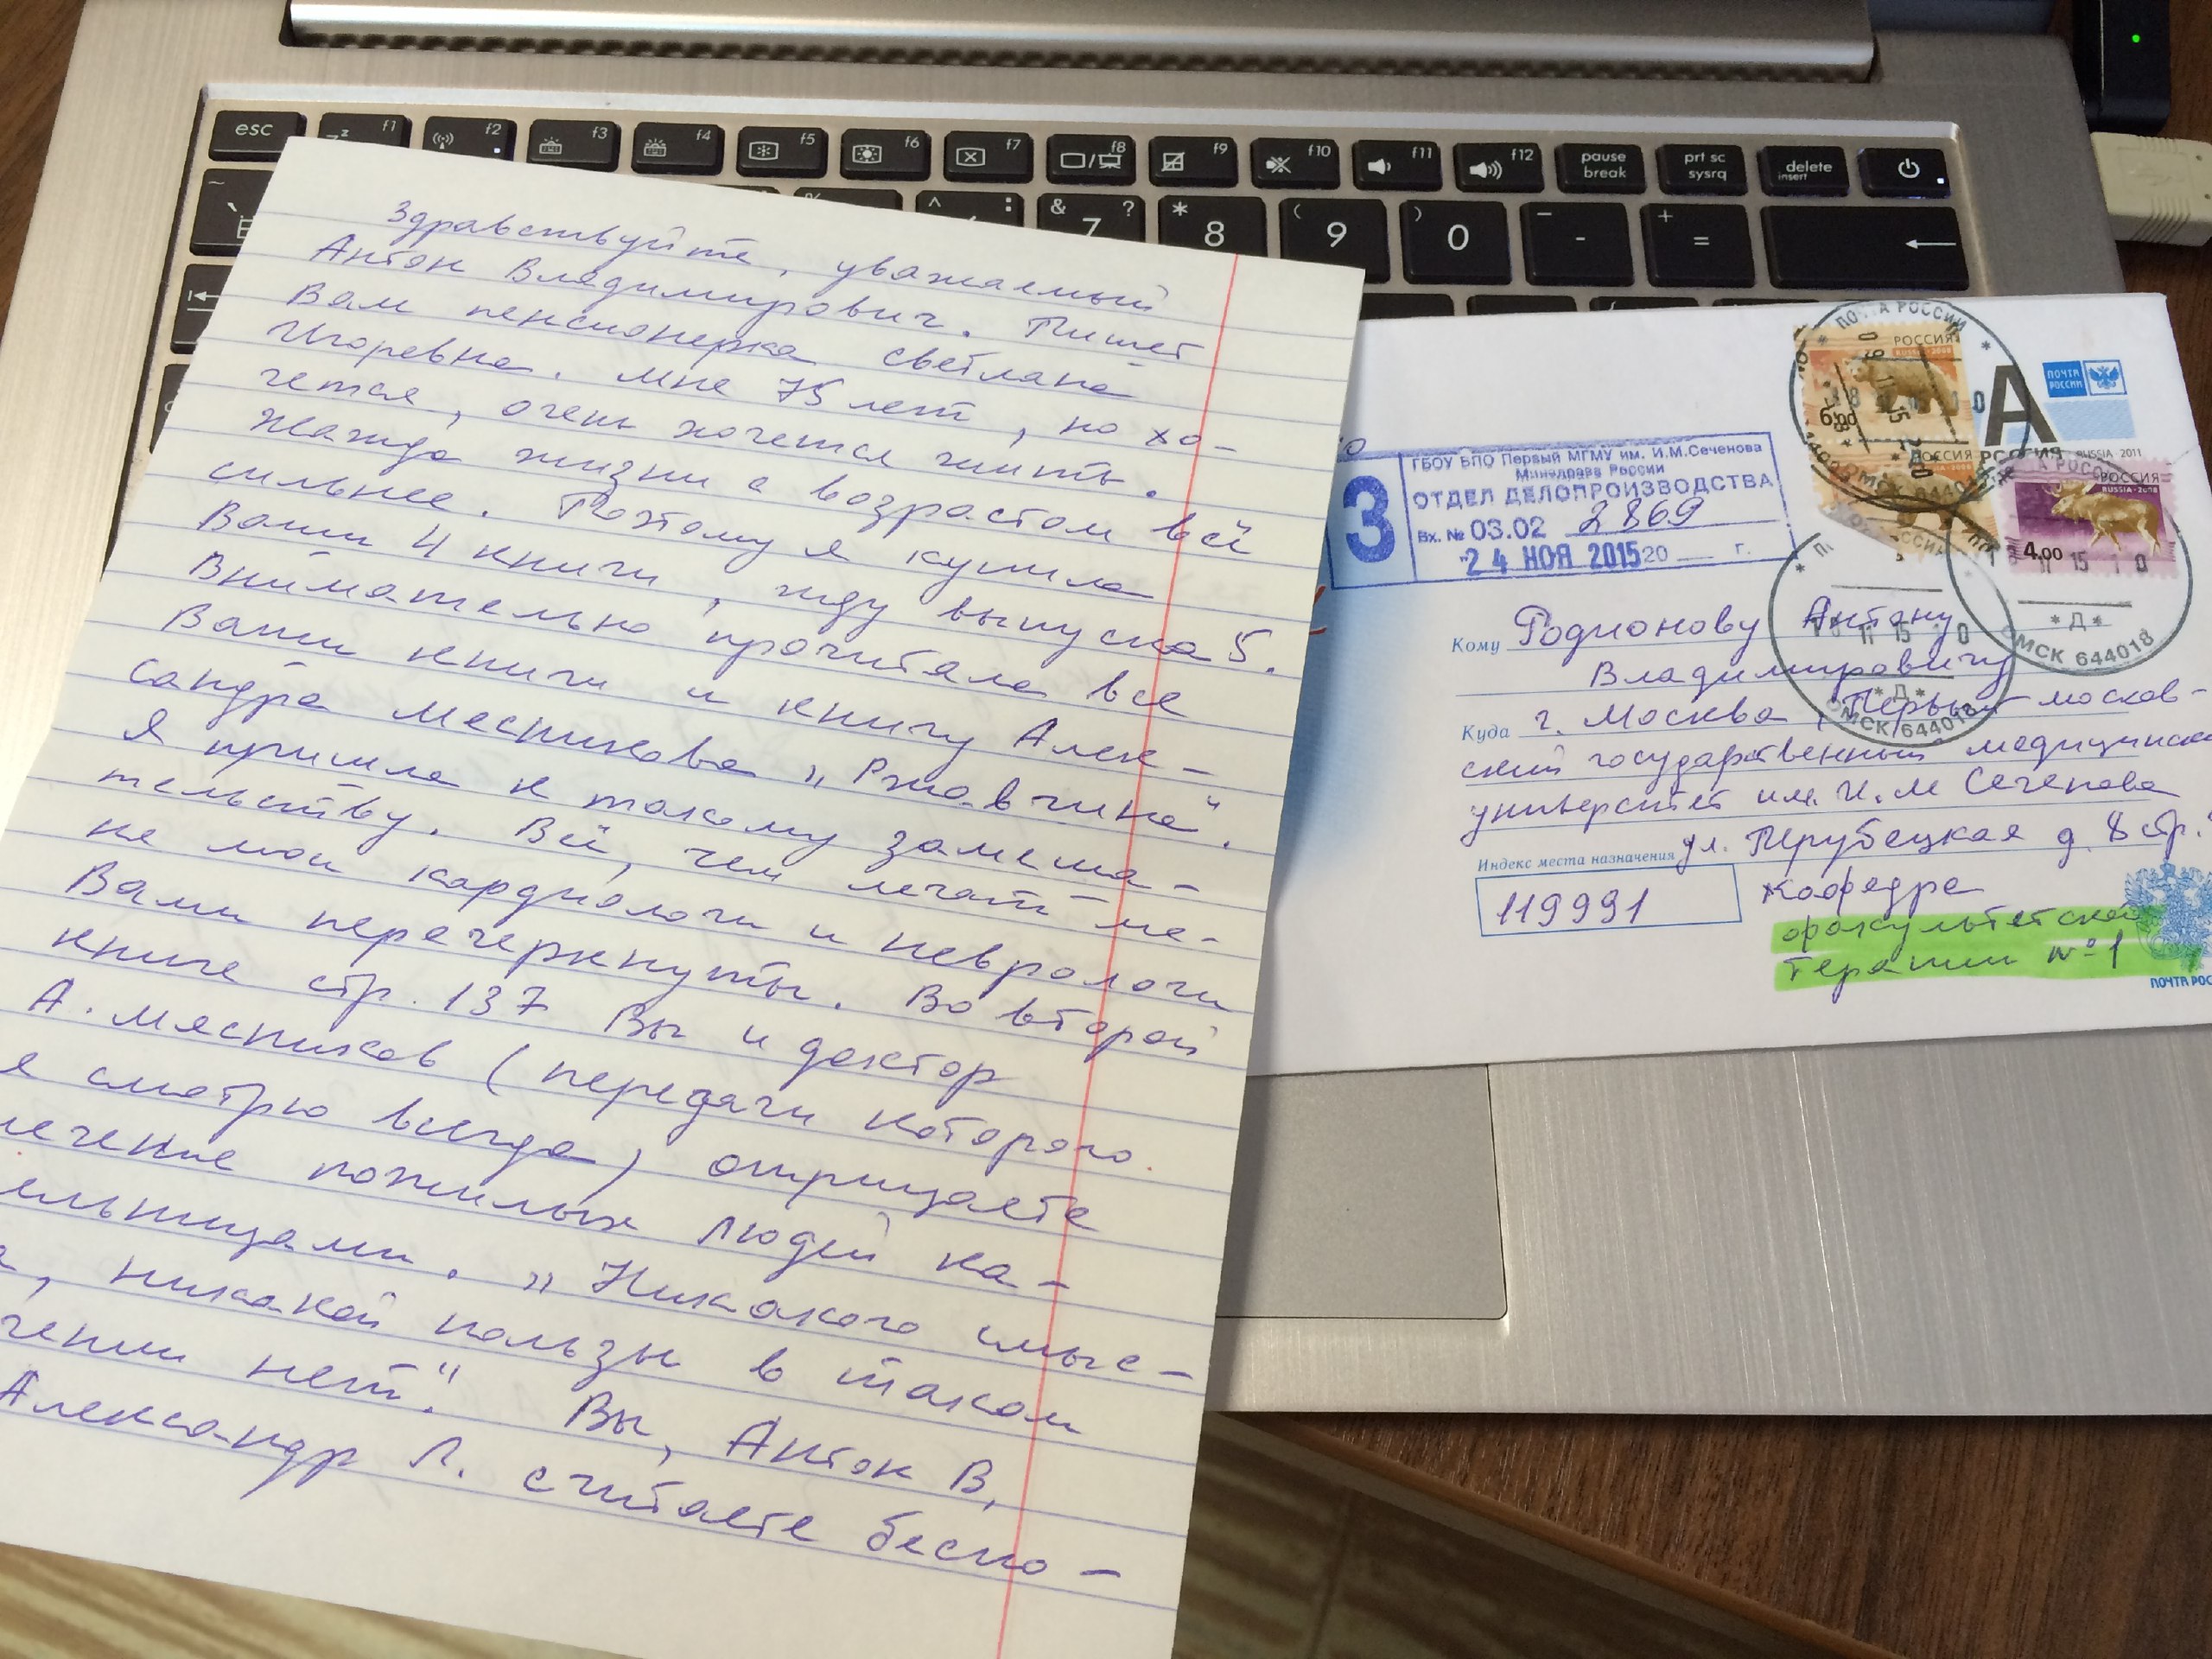 Здравствуйте, уважаемый
Антон Владимирович. Пишет
Вам пенсионерка Светлана
Игоревна. Мне 75 лет, но хо-
чется, очень хочется жить.
Жажда жизни с возрастом всё
сильнее. Поэтому я купила
Ваши 4 книги, жду выпуска 5.
Внимательно прочитала все
Ваши книги и книгу Алек-
сандра Месникова „Ржавчина".
Я пришла к такому замеша-
тельству. Всё, чем лечат ме-
ня мои кардиологи и неврологи
Вами перечеркнуты. Во второй
книге стр. 137 Вы и доктор
А. Мясников (передачи которого
я смотрю всегда) отрицаете
лечение пожилых людей ка-
ельницами. „Никакого смыс-
а, никакой пользы в таком
чении нет". Вы, Антон В,
Александр Л. считаете беспо-
ГБОУ ВПО Первый МГМУ им. И.М.Сеченова
Минздрава России
ОТДЕЛ ДЕЛОПРОИЗВОДСТВА
3
Вх. № 03.02 2869
"24 НОЯ 2015 20 г.
ПОЧТА РОССИИ
РОССИЯ
RUSSIA-2008
6.00
А
ПОЧТА
РОССИИ
РОССИЯ
RUSSIA-2011
РОССИЯ
RUSSIA-2008
4.00
ОМСК 644018
*Д*
ОМСК 644018
*Д*
Кому Родионову Антону
Владимировичу
Куда г. Москва, Первый москов-
ский государственный медицинск
университет им. И.М Сеченова
ул. Трубецкая д. 8 стр.
Индекс места назначения
119991
Кафедра
факультетской
терапии № 1
ПОЧТА РОС
esc
f1
f2
f3
f4
f5
f6
f7
f8
f9
f10
f11
f12
pause
break
prt sc
sysrq
delete
insert
~
^ :
& 7 ?
* 8
( 9
) 0
- -
+ =